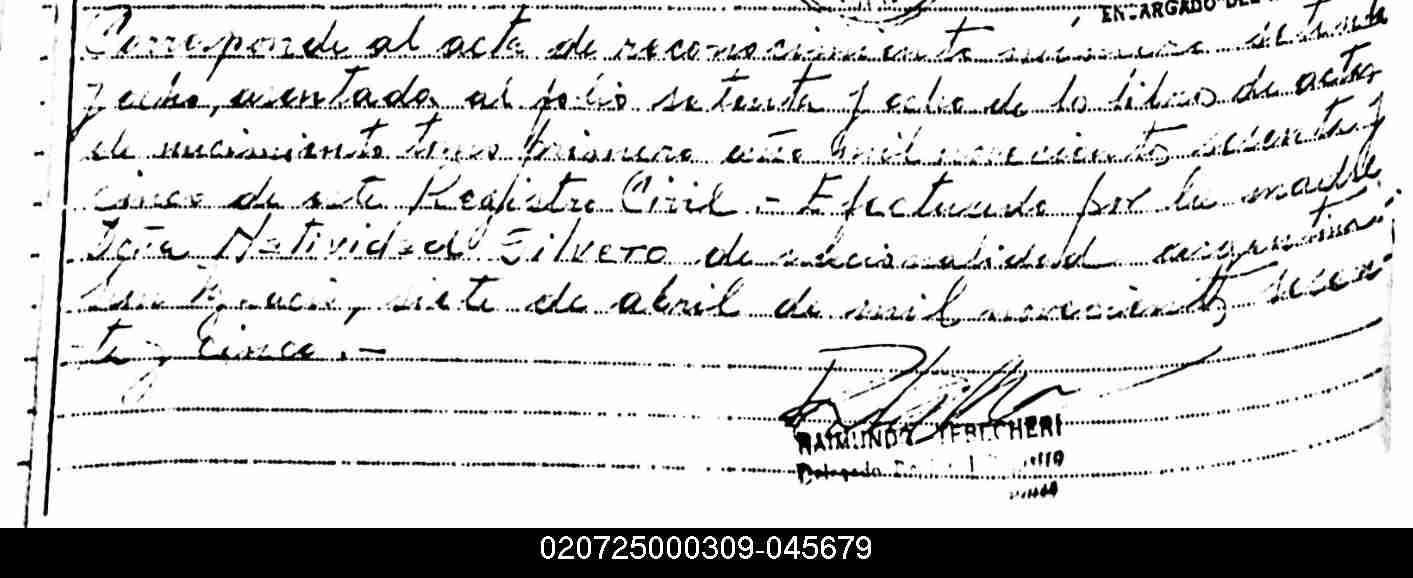 ENCARGADO DEL
Corresponde al acta de reconocimiento número setenta
y ocho, asentada al folio setenta y ocho de lo libro de actas
de nacimiento tomo primero año mil novecientos sesenta y
cinco de este Registro Civil.- Efectuado por la madre
Natividad Silvero de nacionalidad argentina.
siete de abril de mil novecientos sesen
ta y cinco.-
RAIMUNDO YEBECHERI
Delegado
020725000309-045679